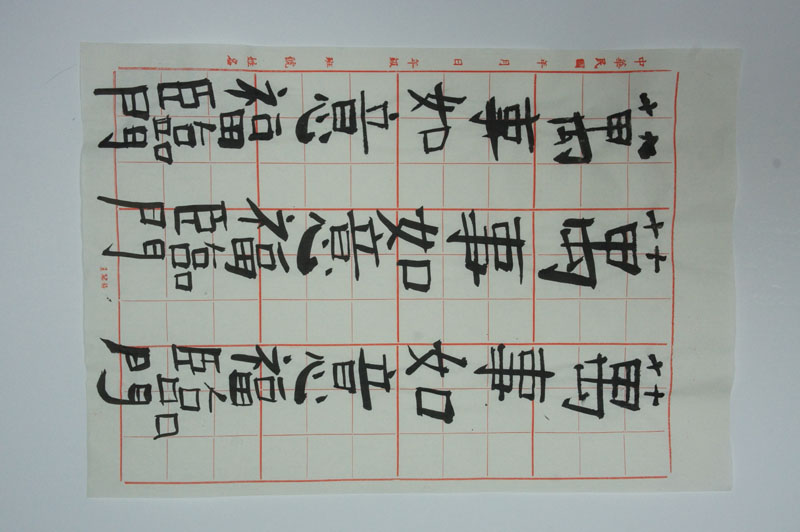 萬事如意福臨門
萬事如意福臨門
萬事如意福臨門
中華民國 年 月 日 年級 班 號 姓名